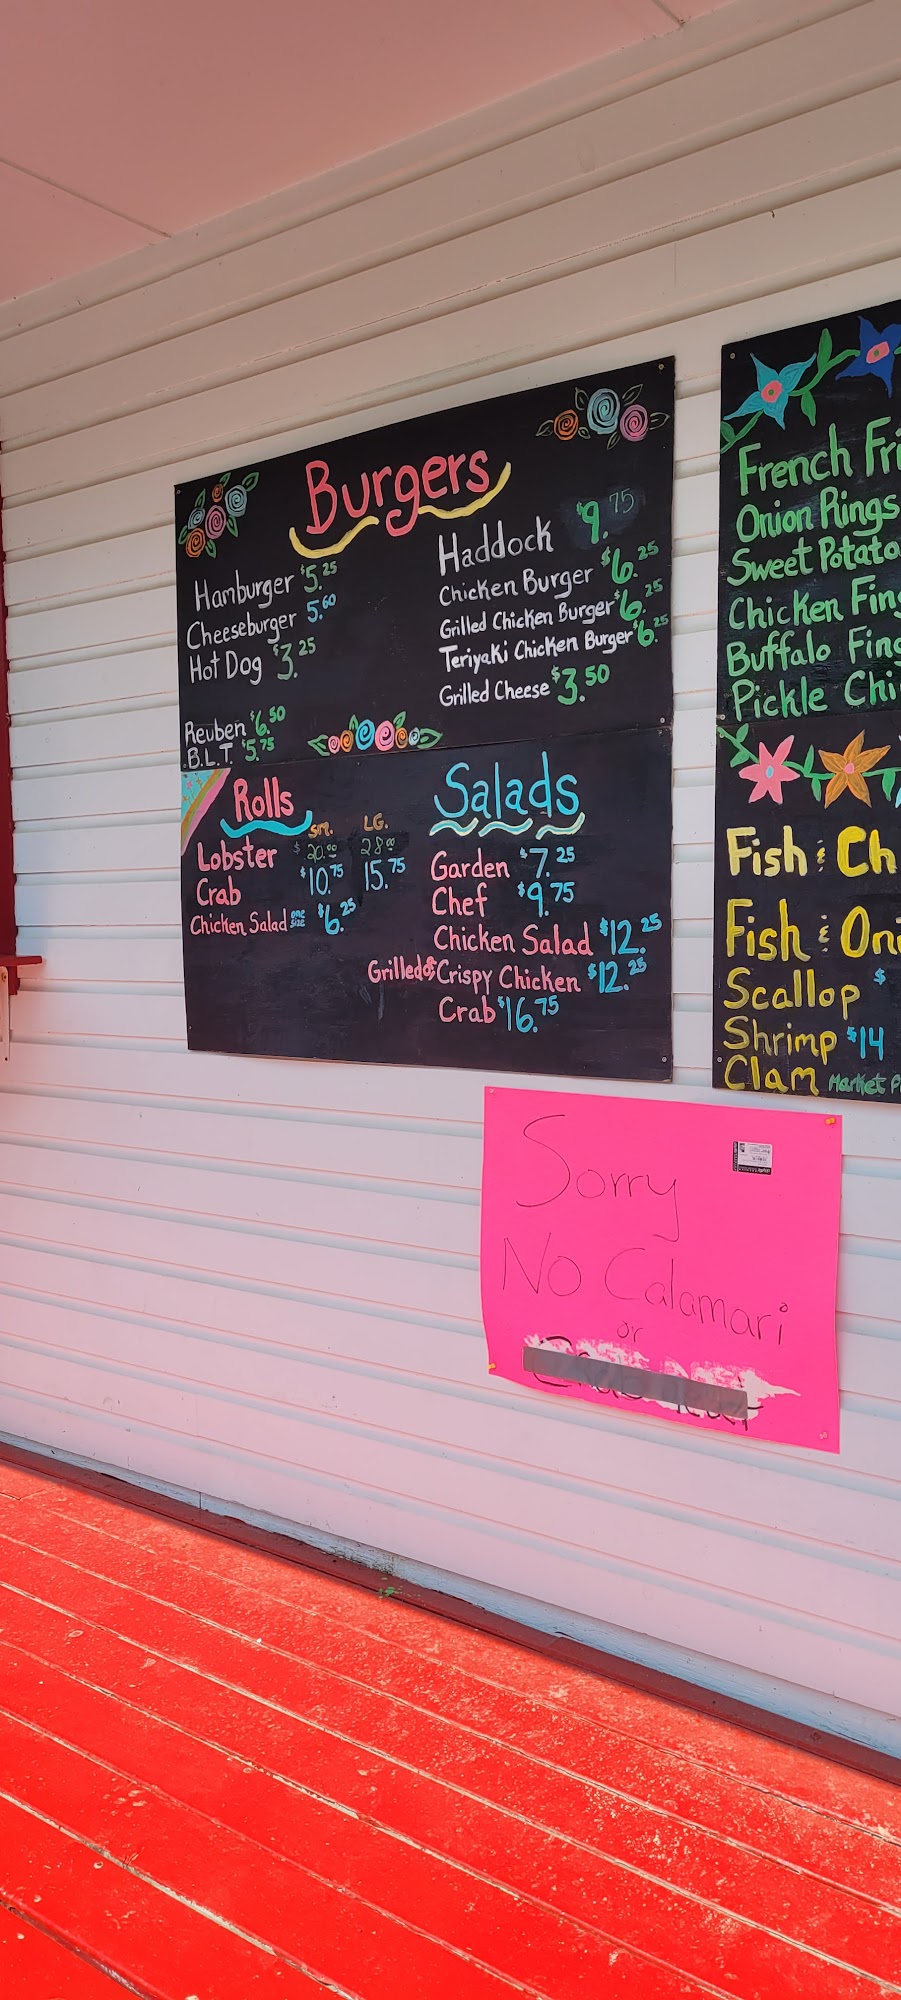 Burgers
Hamburger $5.25
Cheeseburger 5.60
Hot Dog $3.25
Reuben $6.50
B.L.T. $5.75
Haddock $9.75
Chicken Burger $6.25
Grilled Chicken Burger $6.25
Teriyaki Chicken Burger $6.25
Grilled Cheese $3.50
Rolls
Sm. LG.
Lobster $20.00 28.00
Crab $10.75 15.75
Chicken Salad one size $6.25
Salads
Garden $7.25
Chef $9.75
Chicken Salad $12.25
Grilled or Crispy Chicken $12.25
Crab $16.75
French Fri
Onion Rings
Sweet Potato
Chicken Fing
Buffalo Fing
Pickle Chi
Fish & Ch
Fish & Oni
Scallop $
Shrimp $14
Clam Market P
Sorry
No Calamari
or